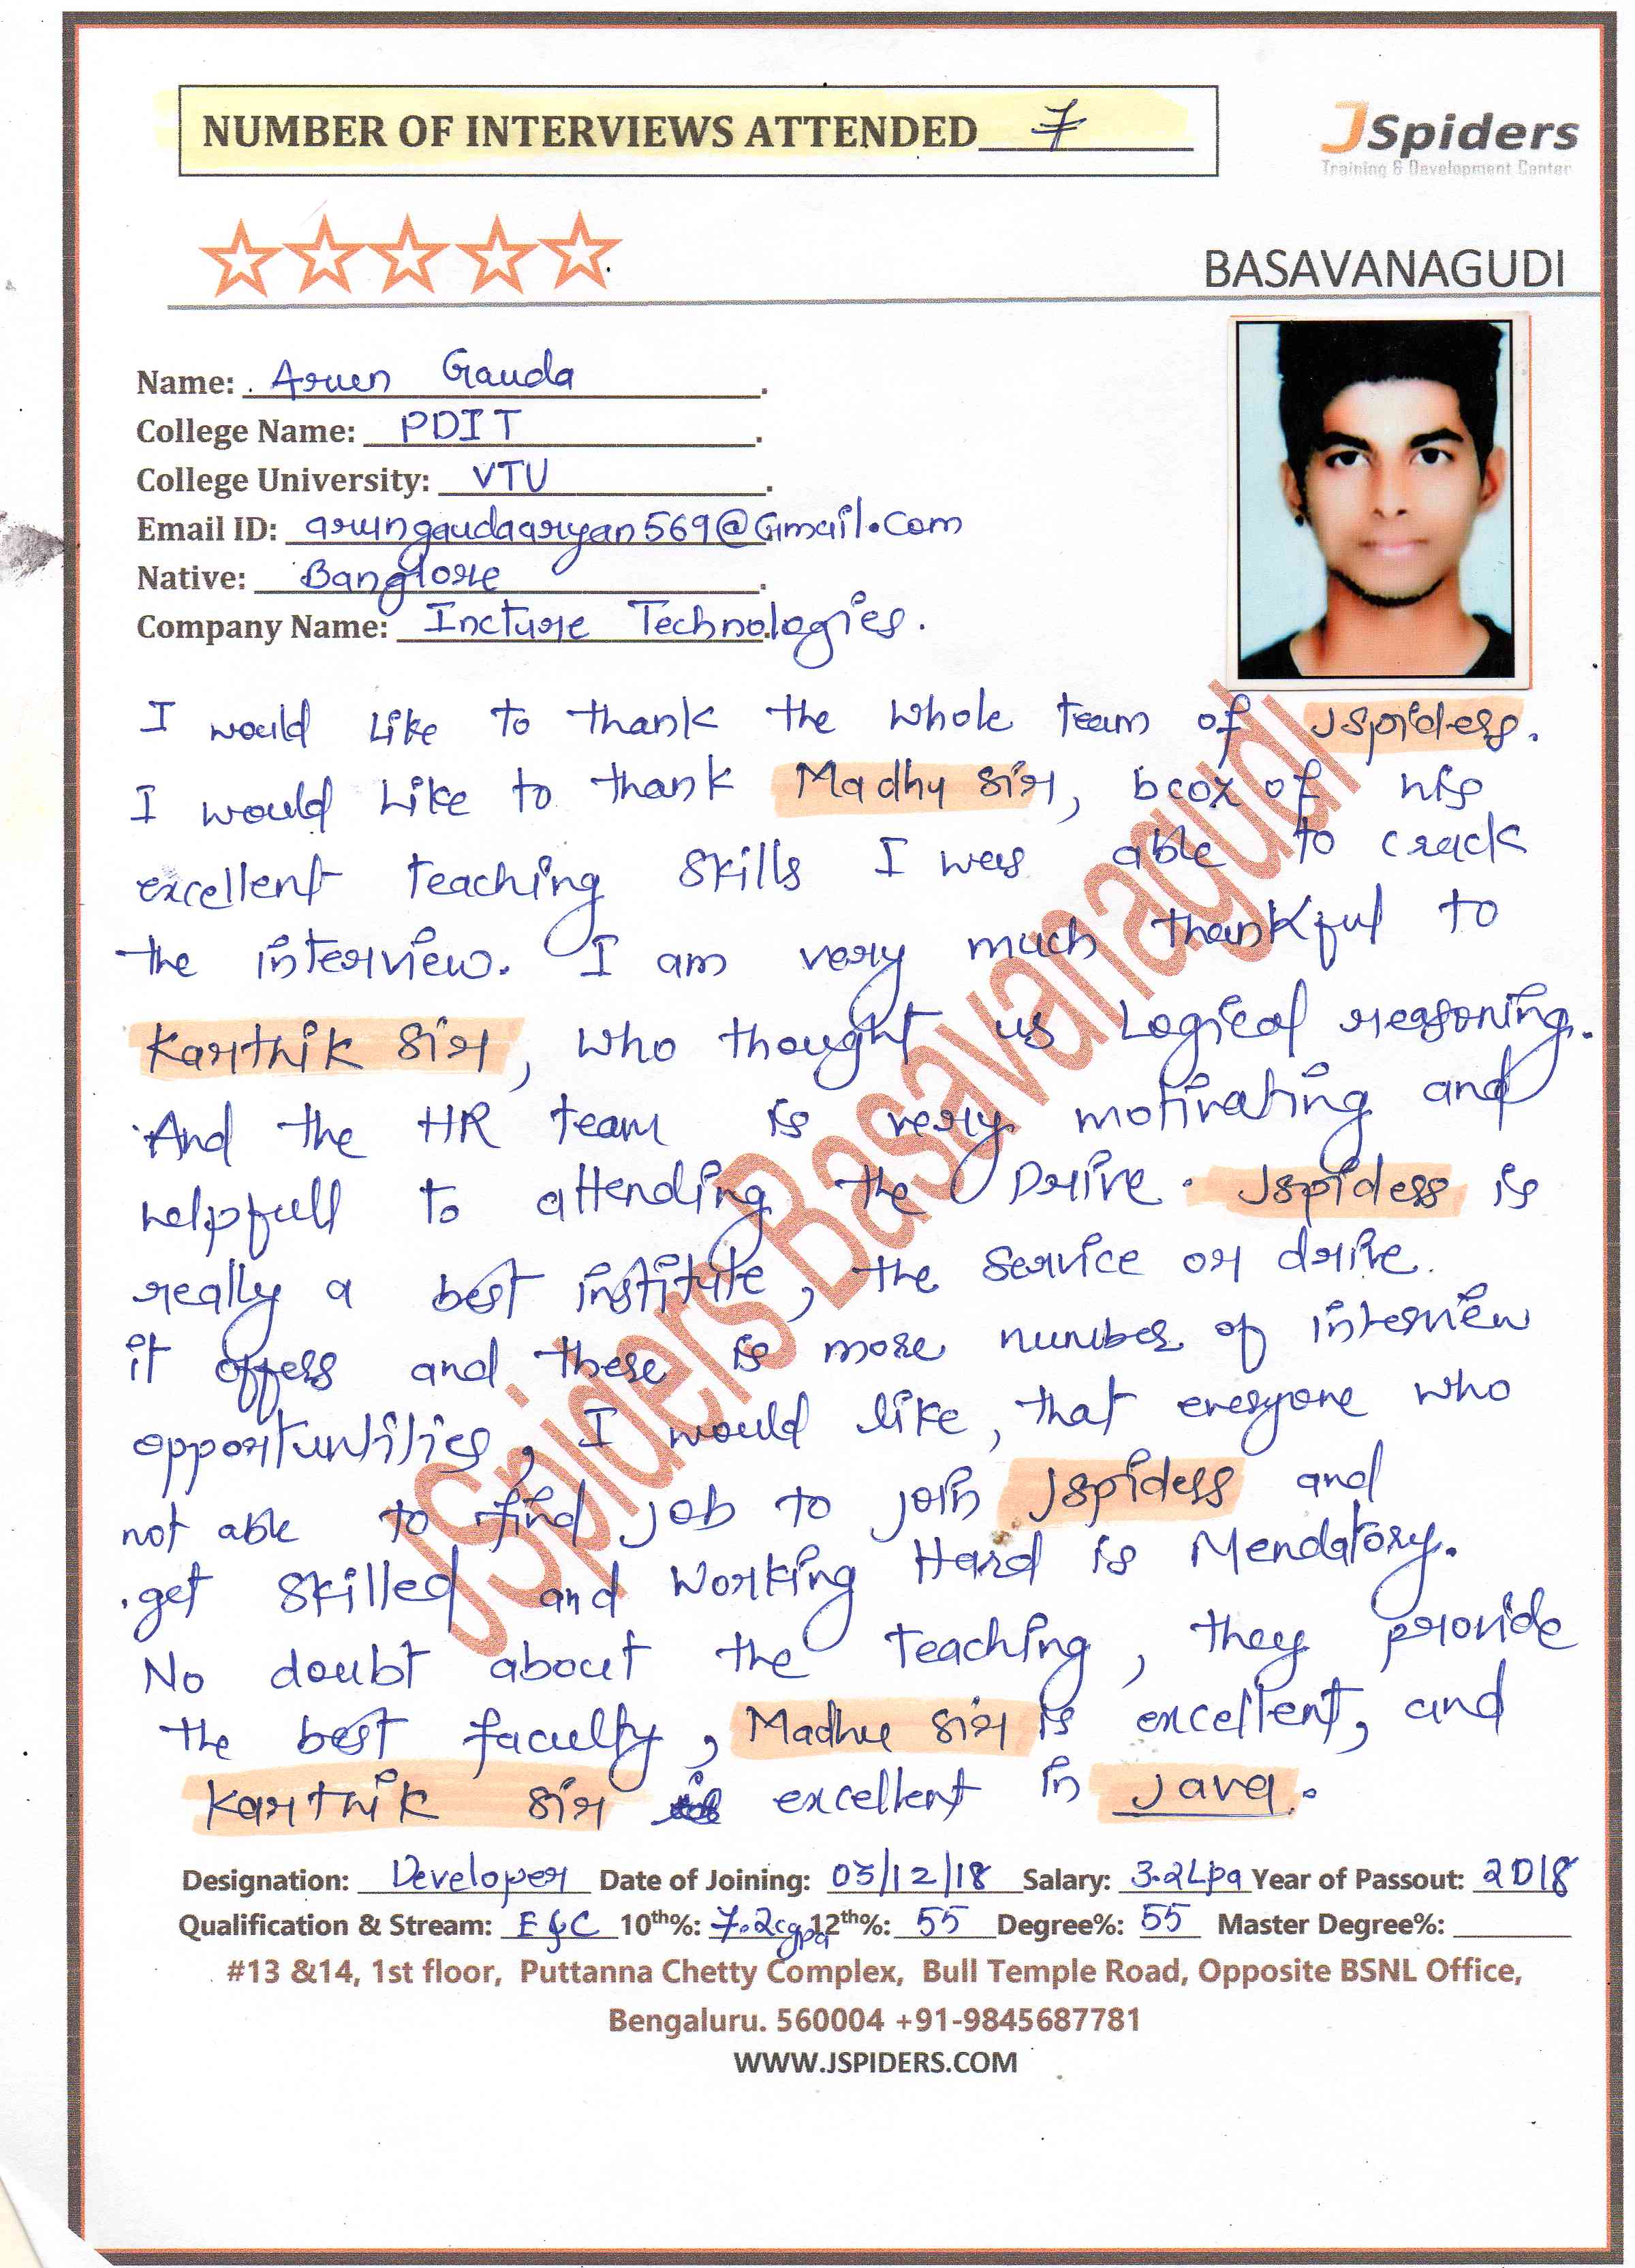 NUMBER OF INTERVIEWS ATTENDED 7
JSpiders
Training & Development Center
BASAVANAGUDI
Name: Arun Gauda
College Name: PDIT
College University: VTU
Email ID: arungaudaaryan569@Gmail.Com
Native: Banglore
Company Name: Incture Technologies.
I would Like to thank the whole team of Jspiders.
I would Like to thank Madhu sir, bcoz of his
excellent teaching skills I was able to crack
the interview. I am very much thankful to
Karthik sir, who thought us Logical reasoning.
And the HR team is very motivating and
helpfull to attending the Drive. Jspiders is
really a best institute, the service or drive.
it offers and there is more number of interview
opportunities, I would like, that everyone who
not able to find job to join Jspiders and
get skilled and Working Hard is Mendatory.
No doubt about the Teaching, they provide
the best faculty, Madhu sir is excellent, and
Karthik sir is excellent in Java.
JSpiders Basavanagudi
Designation: Developer Date of Joining: 03/12/18 Salary: 3.2Lpa Year of Passout: 2018
Qualification & Stream: E&C 10th%: 7.2cgpa 12th%: 55 Degree%: 55 Master Degree%:
#13 &14, 1st floor, Puttanna Chetty Complex, Bull Temple Road, Opposite BSNL Office,
Bengaluru. 560004 +91-9845687781
WWW.JSPIDERS.COM